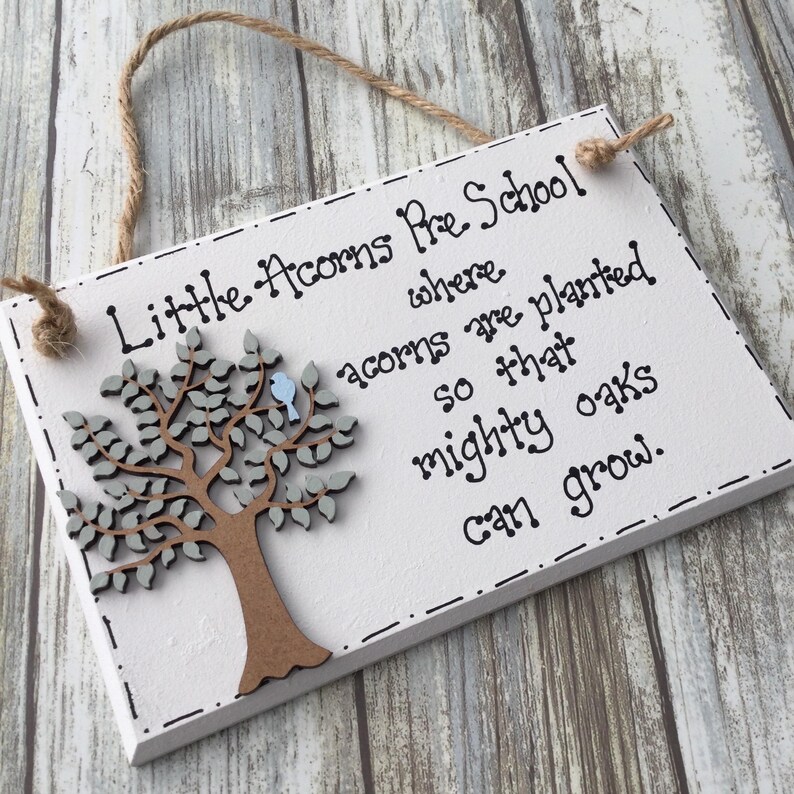 Little Acorns Pre School
where
acorns are planted
so that
mighty oaks
can grow.